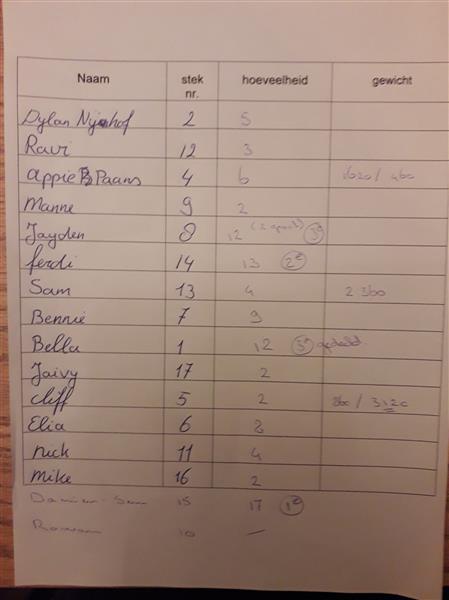 Naam stek nr. hoeveelheid gewicht
Dylan Nijenhof 2 5
Ravi 12 3
Appie Paans 4 6 1620 / 460
Manne 9 2
Jayden 8 12 3e
ferdi 14 13 2e
Sam 13 4 2.360
Bennie 7 9
Bella 1 12 3e gedeeld
Jaivy 17 2
Cliff 5 2 / 3120
Elia 6 8
nick 11 4
mike 16 2
15 17 1e
10 —